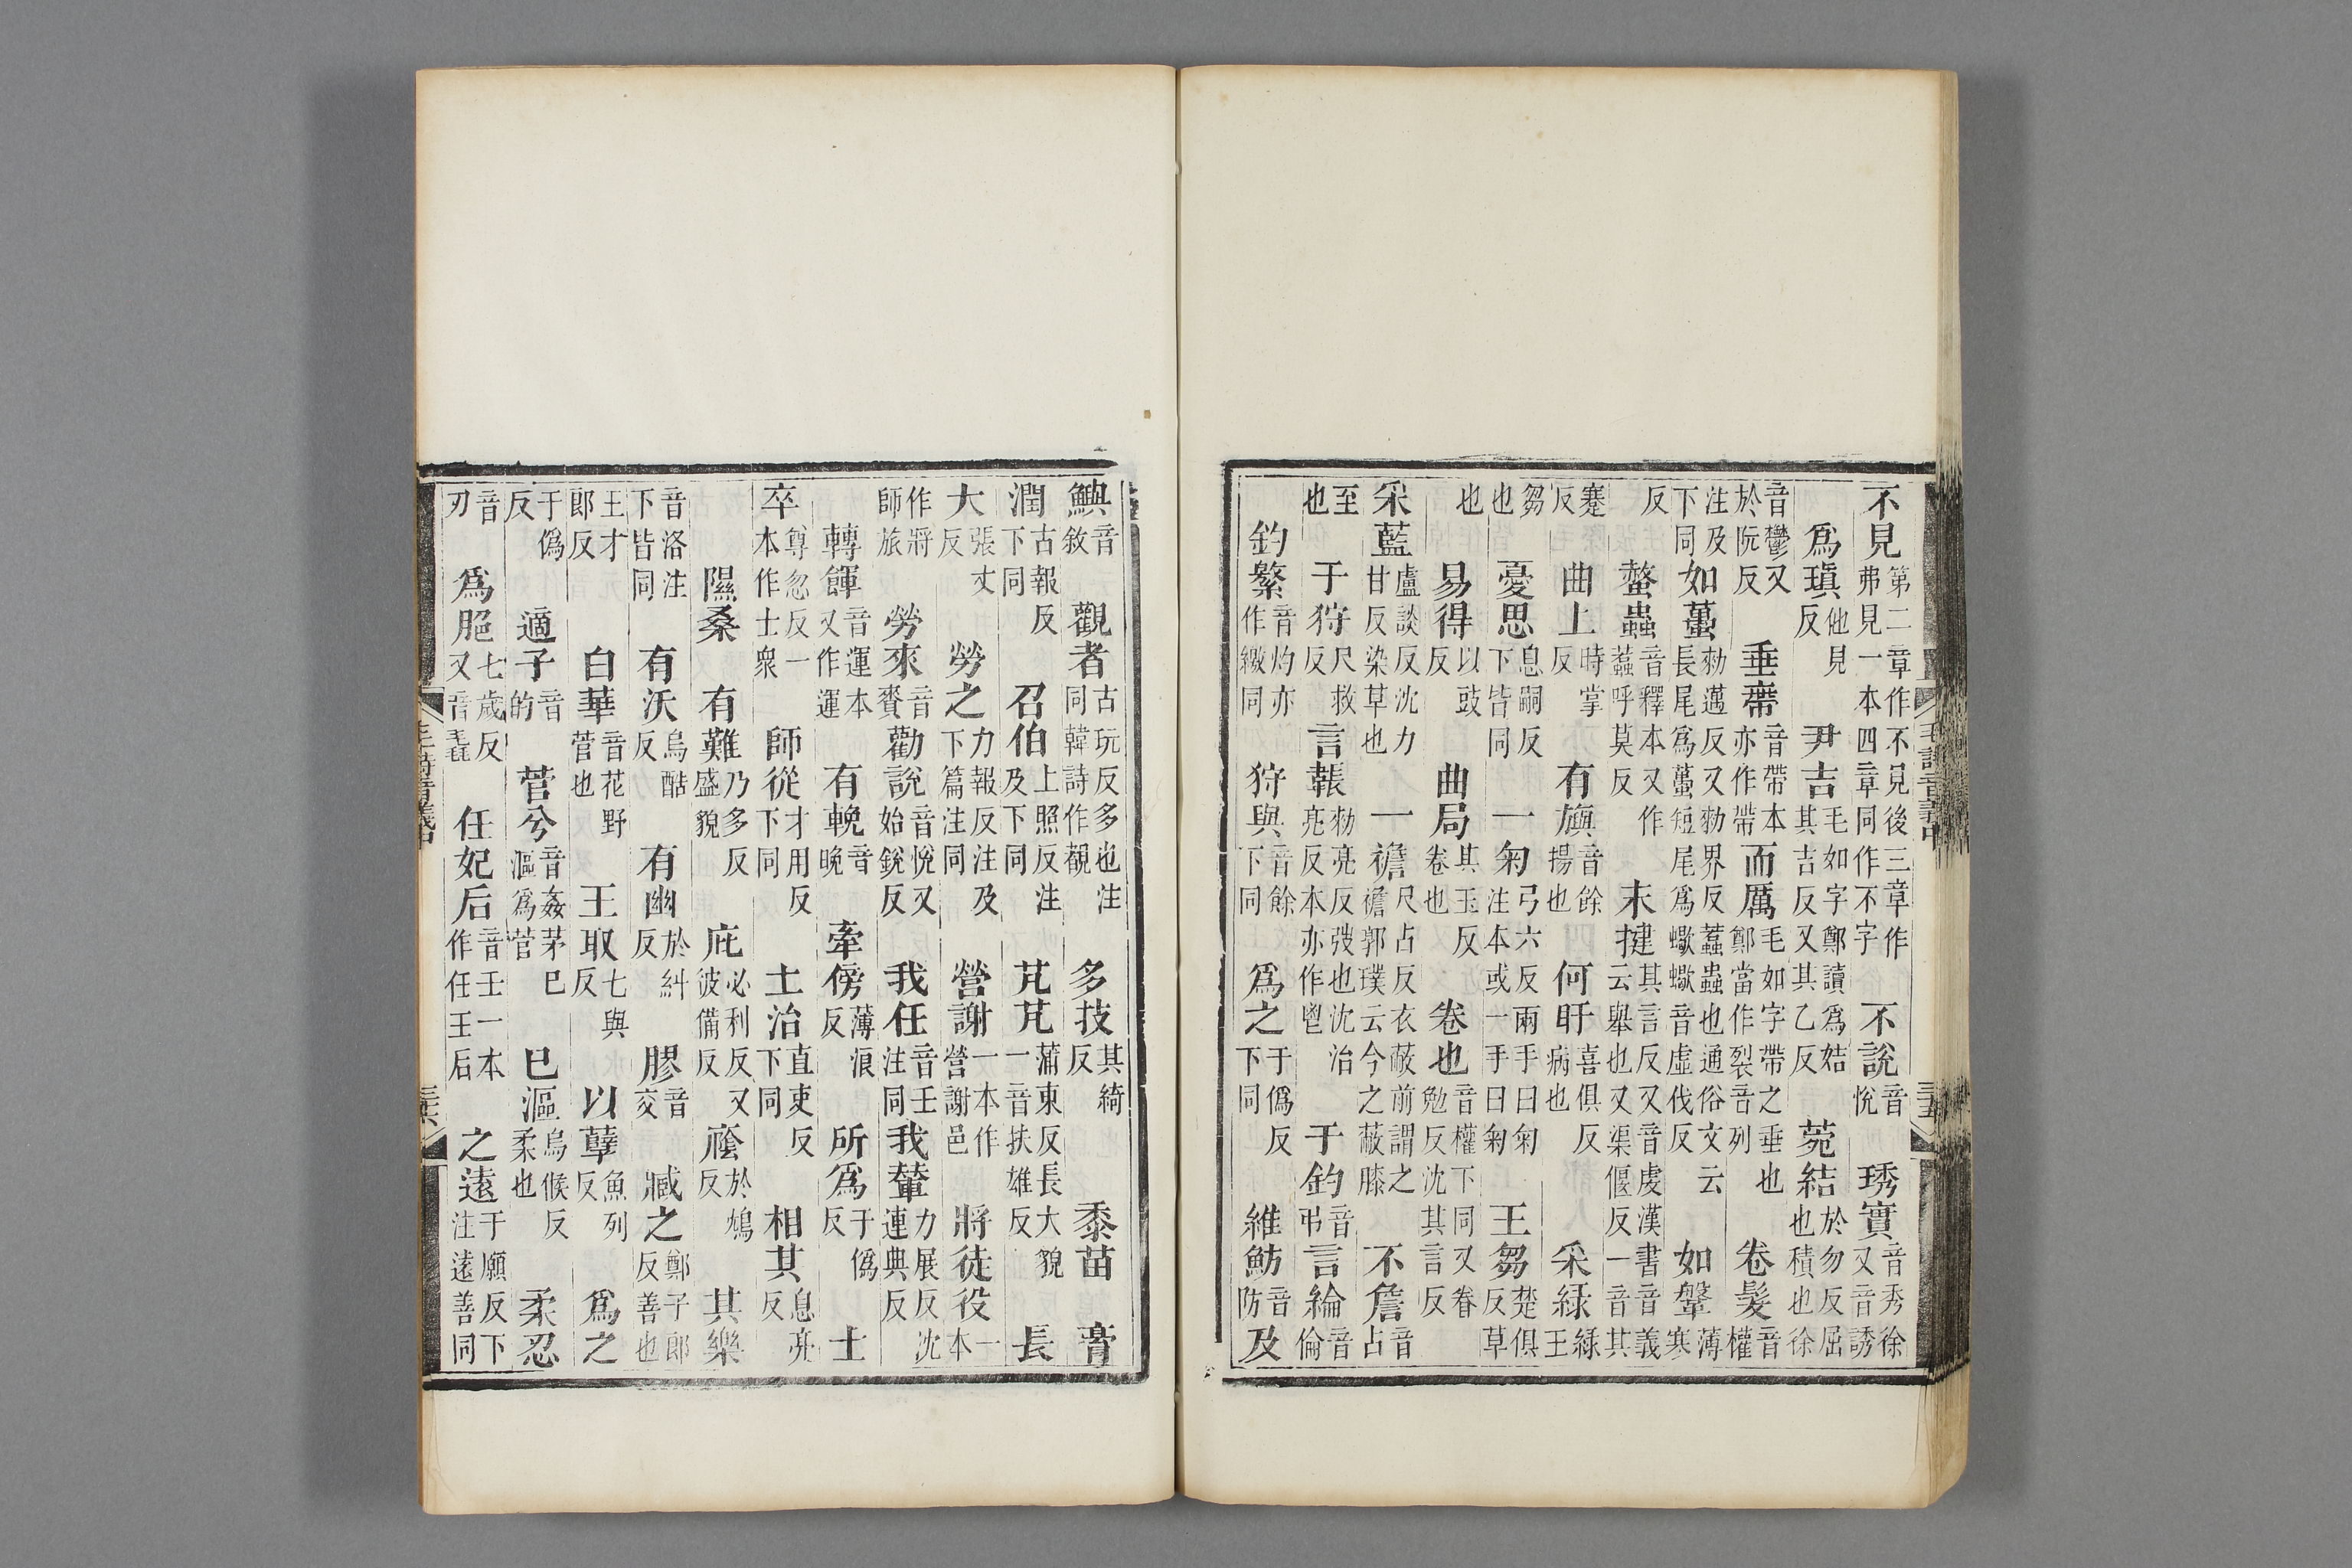 不見第二章作不見後三章作弗見一本四章同作不字不說音悅琇實音秀徐又音誘
爲瑱他見反尹吉毛如字鄭讀爲姞其吉反又其乙反菀結於勿反屈也積也徐
音鬱又於阮反垂帶音帶本亦作帶而厲毛如字帶之垂也鄭當作裂音列卷髮音權
注及下同如蠆勑邁反又勑界反蠚蟲也通俗文云長尾爲蠆短尾爲蠍蠍音虛伐反如鞶薄寒
反螫蟲音釋本又作蠚呼莫反末揵其言反又音虔漢書音義云舉也又渠偃反一音其
蹇反曲上時掌反有旟音餘揚也何盱喜俱反病也采綠綠王
芻也憂思息嗣反下皆同一匊弓六反兩手曰匊注本或一手曰匊王芻楚俱反草
也易得以豉反曲局其玉反卷也卷也音權下同又眷勉反沈其言反
采藍盧談反沈力甘反染草也一襜尺占反衣蔽前謂之襜郭璞云今之蔽膝不詹音占
至也于狩尺救反言韔勑亮反弢也沈治亮反本亦作鬯于釣音弔言綸音倫
釣繁音灼亦作繳同狩與音餘下同爲之于僞反下同維魴音防及
毛詩音義中
三十五
鱮音敘觀者古玩反多也注同韓詩作覩多技其綺反黍苗膏
潤古報反下同召伯上照反注及下同芃芃蒲東反長大貌一音扶雄反長
大張丈反勞之力報反注及下篇注同營謝一本作營謝邑將徒役一本
作將師旅勞來音賚勸說音悅又始銳反我任音壬注同我輦力展反沈連典反
轉餫音運本又作運有輓音晚牽傍薄浪反所爲于僞反士
卒尊忽反一本作士衆師從才用反下同土治直吏反下同相其息亮反
隰桑有難乃多反盛貌庇必利反又彼備反廕於鴆反其樂
音洛注下皆同有沃烏酷反有幽於糾反膠音交臧之鄭子郎反善也
王才郎反白華音花野菅也王取七與反以孽魚列反爲之
于僞反適子音的菅兮音姦茅已漚爲菅已漚烏候反柔也柔忍
音刃爲脃七歲反又音毳任妃后音壬一本作任王后之遠于願反下注遠善同
毛詩音義中
三十六